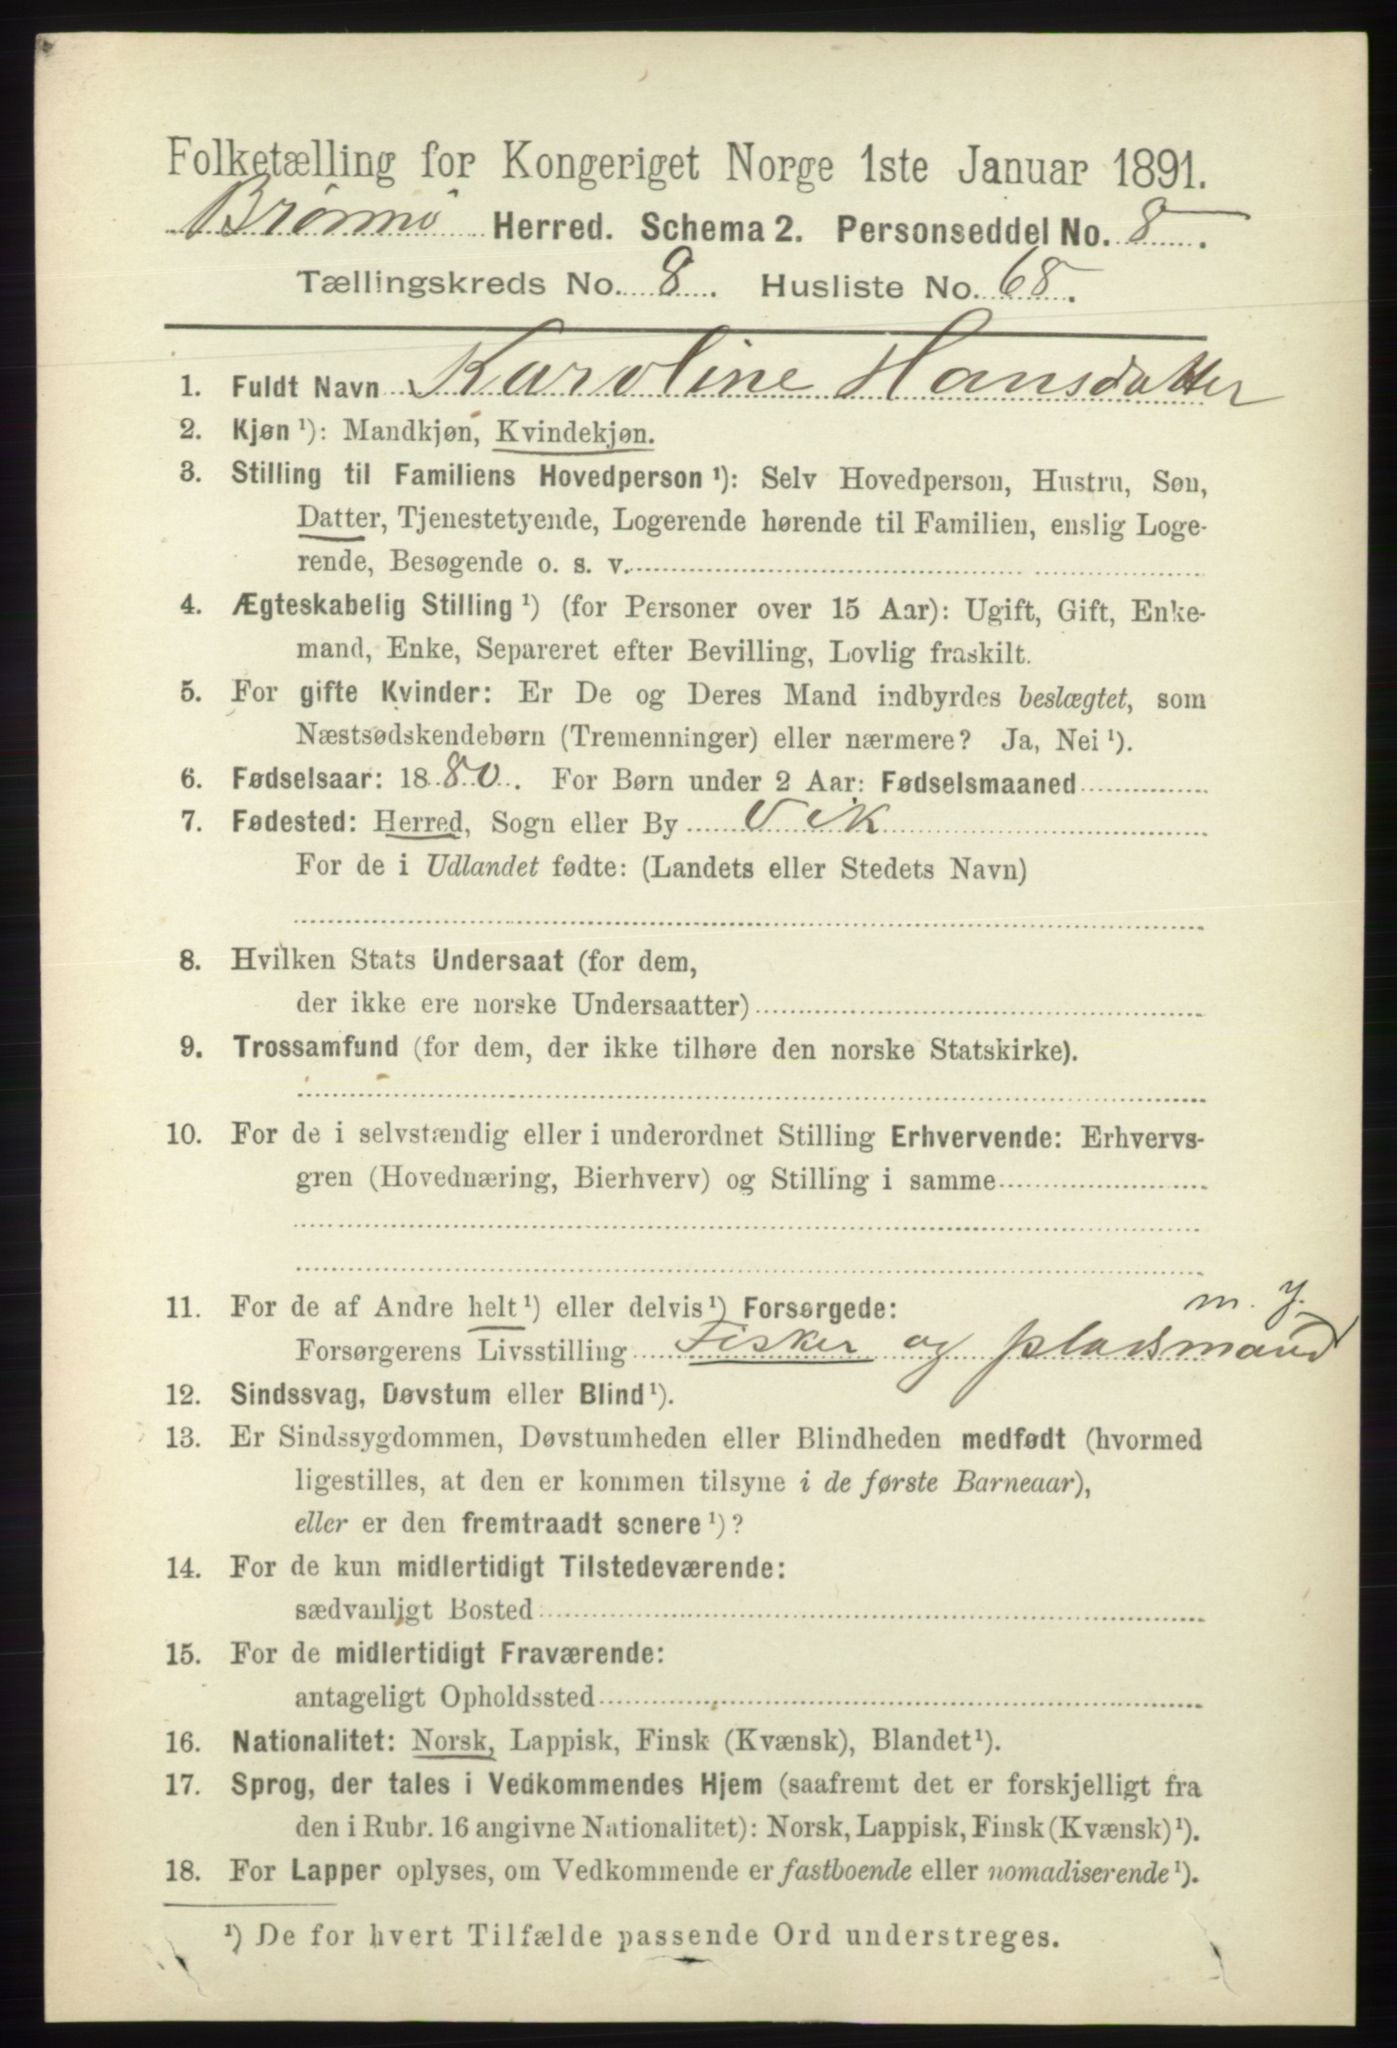 Folketælling for Kongeriget Norge 1ste Januar 1891.
Brønnø Herred. Schema 2. Personseddel No. 8.
Tællingskreds No. 8. Husliste No. 68.
1. Fuldt Navn Karoline Hansdatter
2. Kjøn ¹): Mandkjøn, Kvindekjøn.
3. Stilling til Familiens Hovedperson ¹): Selv Hovedperson, Hustru, Søn,
Datter, Tjenestetyende, Logerende hørende til Familien, enslig Loge-
rende, Besøgende o. s. v.
4. Ægteskabelig Stilling ¹) (for Personer over 15 Aar): Ugift, Gift, Enke-
mand, Enke, Separeret efter Bevilling, Lovlig fraskilt.
5. For gifte Kvinder: Er De og Deres Mand indbyrdes beslægtet, som
Næstsødskendebørn (Tremenninger) eller nærmere? Ja, Nei ¹).
6. Fødselsaar: 1880. For Børn under 2 Aar: Fødselsmaaned
7. Fødested: Herred, Sogn eller By Vik
For de i Udlandet fødte: (Landets eller Stedets Navn)
8. Hvilken Stats Undersaat (for dem,
der ikke ere norske Undersaatter)
9. Trossamfund (for dem, der ikke tilhøre den norske Statskirke).
10. For de i selvstændig eller i underordnet Stilling Erhvervende: Erhvervs-
gren (Hovednæring, Bierhverv) og Stilling i samme
11. For de af Andre helt ¹) eller delvis ¹) Forsørgede: m. j.
Forsørgerens Livsstilling Fisker og pladsmand
12. Sindssvag, Døvstum eller Blind ¹).
13. Er Sindssygdommen, Døvstumheden eller Blindheden medfødt (hvormed
ligestilles, at den er kommen tilsyne i de første Barneaar),
eller er den fremtraadt senere ¹)?
14. For de kun midlertidigt Tilstedeværende:
sædvanligt Bosted
15. For de midlertidigt Fraværende:
antageligt Opholdssted
16. Nationalitet: Norsk, Lappisk, Finsk (Kvænsk), Blandet ¹).
17. Sprog, der tales i Vedkommendes Hjem (saafremt det er forskjelligt fra
den i Rubr. 16 angivne Nationalitet): Norsk, Lappisk, Finsk (Kvænsk) ¹).
18. For Lapper oplyses, om Vedkommende er fastboende eller nomadiserende ¹).
¹) De for hvert Tilfælde passende Ord understreges.